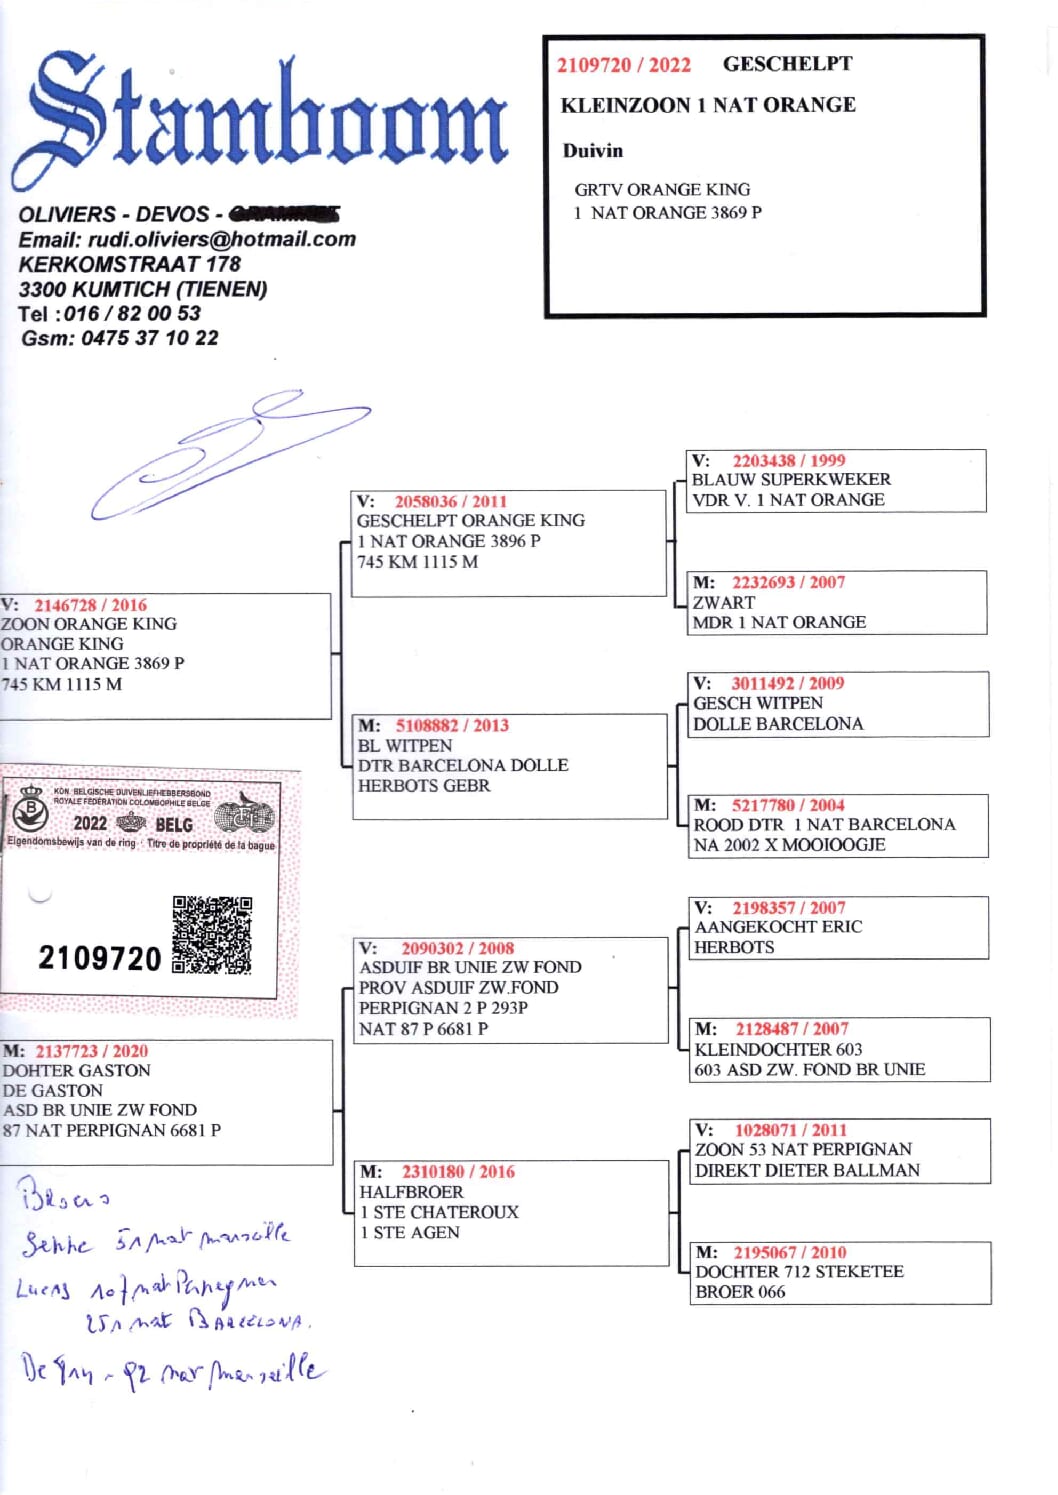 Stamboom
OLIVIERS - DEVOS -
Email: rudi.oliviers@hotmail.com
KERKOMSTRAAT 178
3300 KUMTICH (TIENEN)
Tel : 016 / 82 00 53
Gsm: 0475 37 10 22
2109720 / 2022 GESCHELPT
KLEINZOON 1 NAT ORANGE
Duivin
GRTV ORANGE KING
1 NAT ORANGE 3869 P
V: 2146728 / 2016
ZOON ORANGE KING
ORANGE KING
1 NAT ORANGE 3869 P
745 KM 1115 M
V: 2058036 / 2011
GESCHELPT ORANGE KING
1 NAT ORANGE 3896 P
745 KM 1115 M
M: 5108882 / 2013
BL WITPEN
DTR BARCELONA DOLLE
HERBOTS GEBR
V: 2203438 / 1999
BLAUW SUPERKWEKER
VDR V. 1 NAT ORANGE
M: 2232693 / 2007
ZWART
MDR 1 NAT ORANGE
V: 3011492 / 2009
GESCH WITPEN
DOLLE BARCELONA
M: 5217780 / 2004
ROOD DTR 1 NAT BARCELONA
NA 2002 X MOOIOOGJE
KON. BELGISCHE DUIVENLIEFHEBBERSBOND
ROYALE FEDERATION COLOMBOPHILE BELGE
2022 BELG
Eigendomsbewijs van de ring - Titre de propriété de la bague
2109720
M: 2137723 / 2020
DOHTER GASTON
DE GASTON
ASD BR UNIE ZW FOND
87 NAT PERPIGNAN 6681 P
V: 2090302 / 2008
ASDUIF BR UNIE ZW FOND
PROV ASDUIF ZW.FOND
PERPIGNAN 2 P 293P
NAT 87 P 6681 P
M: 2310180 / 2016
HALFBROER
1 STE CHATEROUX
1 STE AGEN
V: 2198357 / 2007
AANGEKOCHT ERIC
HERBOTS
M: 2128487 / 2007
KLEINDOCHTER 603
603 ASD ZW. FOND BR UNIE
V: 1028071 / 2011
ZOON 53 NAT PERPIGNAN
DIREKT DIETER BALLMAN
M: 2195067 / 2010
DOCHTER 712 STEKETEE
BROER 066
nat marseille
Lucas nat
nat BARCELONA.
De 92 nat marseille